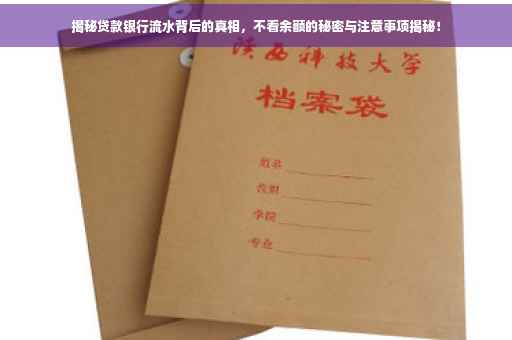 揭秘贷款银行流水背后的真相，不看余额的秘密与注意事项揭秘！
陕西科技大学
档案袋
姓名
学院
专业